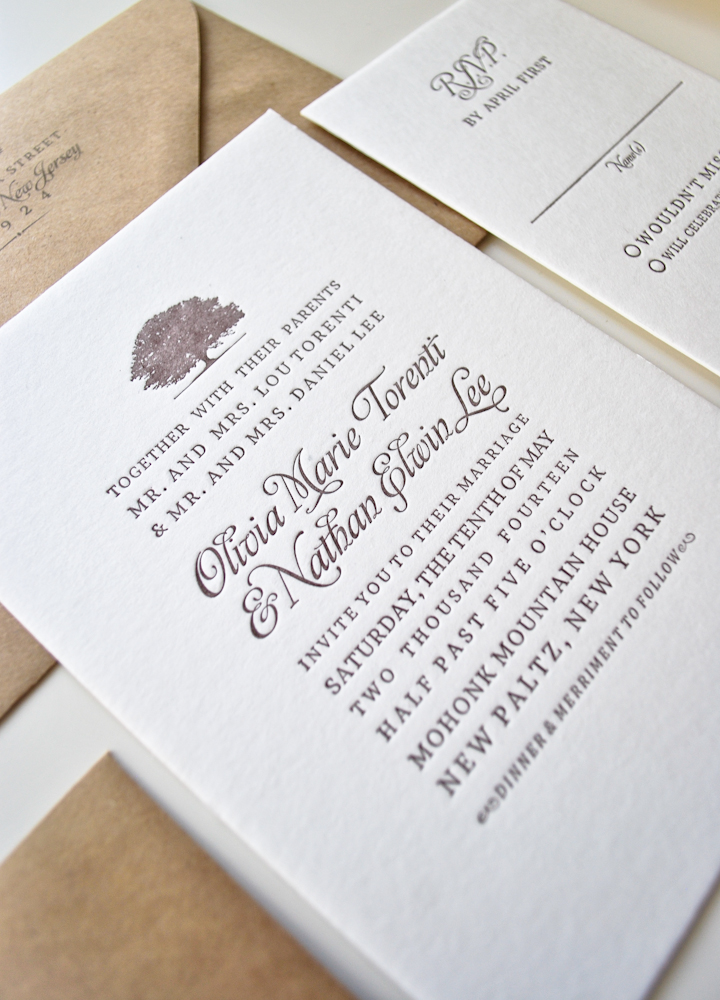 STREET
New Jersey
924
R.S.V.P.
BY APRIL FIRST
Name(s)
WOULDN'T MISS
WILL CELEBRATE
TOGETHER WITH THEIR PARENTS
MR. AND MRS. LOU TORENTI
& MR. AND MRS. DANIEL LEE
Olivia Marie Torenti
& Nathan Elwin Lee
INVITE YOU TO THEIR MARRIAGE
SATURDAY, THE TENTH OF MAY
TWO THOUSAND FOURTEEN
HALF PAST FIVE O'CLOCK
MOHONK MOUNTAIN HOUSE
NEW PALTZ, NEW YORK
DINNER & MERRIMENT TO FOLLOW